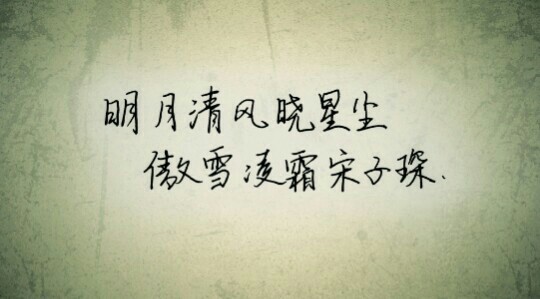 明月清风晓星尘
傲雪凌霜宋子琛.